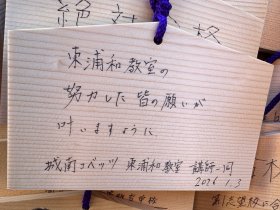 絶対合格
東浦和教室の
努力した皆の願いが
叶いますように
城南コベッツ 東浦和教室 講師一同
2026.1.3